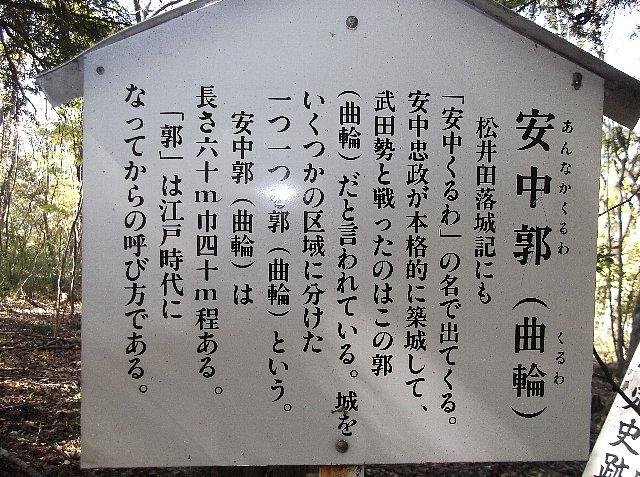 あんなかくるわ くるわ
安中郭(曲輪)
松井田落城記にも
「安中くるわ」の名で出てくる。
安中忠政が本格的に築城して、
武田勢と戦ったのはこの郭
(曲輪)だと言われている。城を
いくつかの区域に分けた
一つ一つ 郭(曲輪)という。
安中郭(曲輪)は
長さ六十m巾四十m程ある。
「郭」は江戸時代に
なってからの呼び方である。
史跡